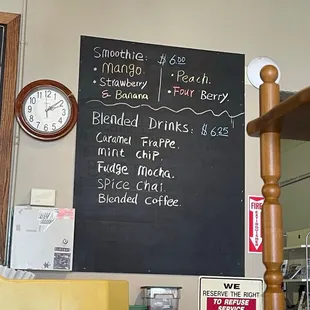 Smoothie: $6.00
• Mango.
• Strawberry
& Banana
• Peach.
• Four Berry.
Blended Drinks: $6.25
Caramel Frappe.
mint chip.
Fudge Mocha.
Spice Chai.
Blended Coffee.
FIRE
EXTINGUISHER
WE
RESERVE THE RIGHT
TO REFUSE
SERVICE